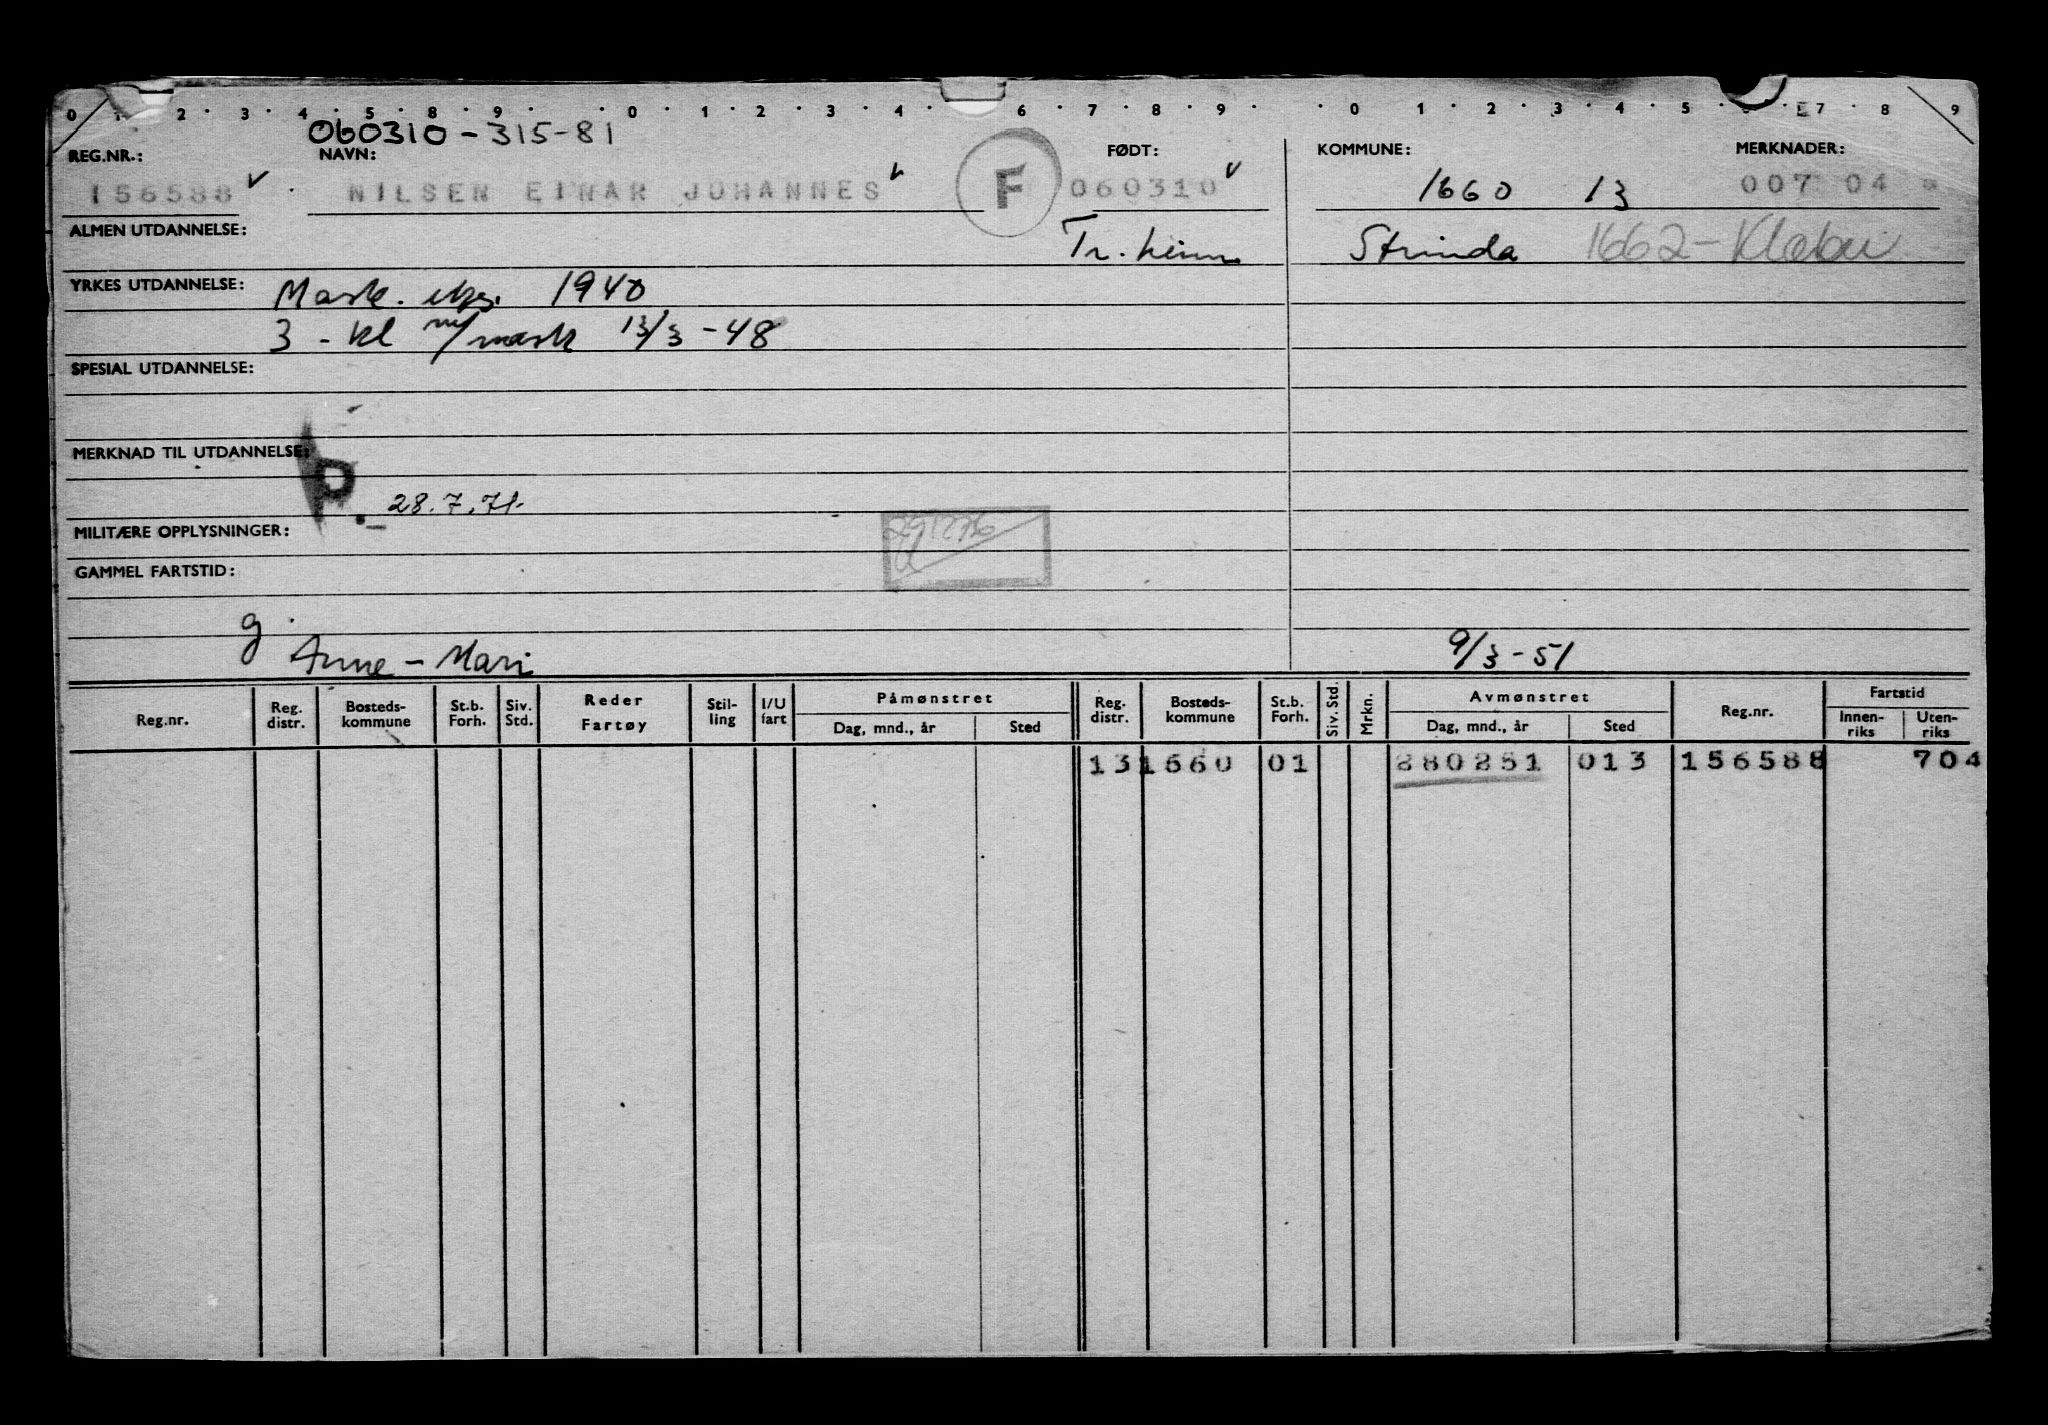 0 1 2 3 4 5 8 9 0 1 2 3 4 6 7 8 9 0 1 2 3 4 5 7 8 9
060310-315-81
REG.NR.: NAVN: FØDT: KOMMUNE: MERKNADER:
156588 NILSEN EINAR JOHANNES F 060310 1660 13 007 04
ALMEN UTDANNELSE: Tr.heim Strinda 1662-Klæbu
YRKES UTDANNELSE: Mask. 1940
3-kl m/mask 13/3-48
SPESIAL UTDANNELSE:
MERKNAD TIL UTDANNELSE:
P. 28.7.71
MILITÆRE OPPLYSNINGER:
GAMMEL FARTSTID:
g
Anne-Mari 9/3-51
Reg.nr. Reg. distr. Bosteds-kommune St.b. Forh. Siv. Std. Reder Fartøy Stil-ling I/U fart Påmønstret Dag, mnd., år Sted Reg. distr. Bosteds-kommune St.b. Forh. Siv. Std. Mrkn. Avmønstret Dag, mnd., år Sted Reg.nr. Fartstid Innen-riks Uten-riks
13 1660 01 280251 013 156588 704